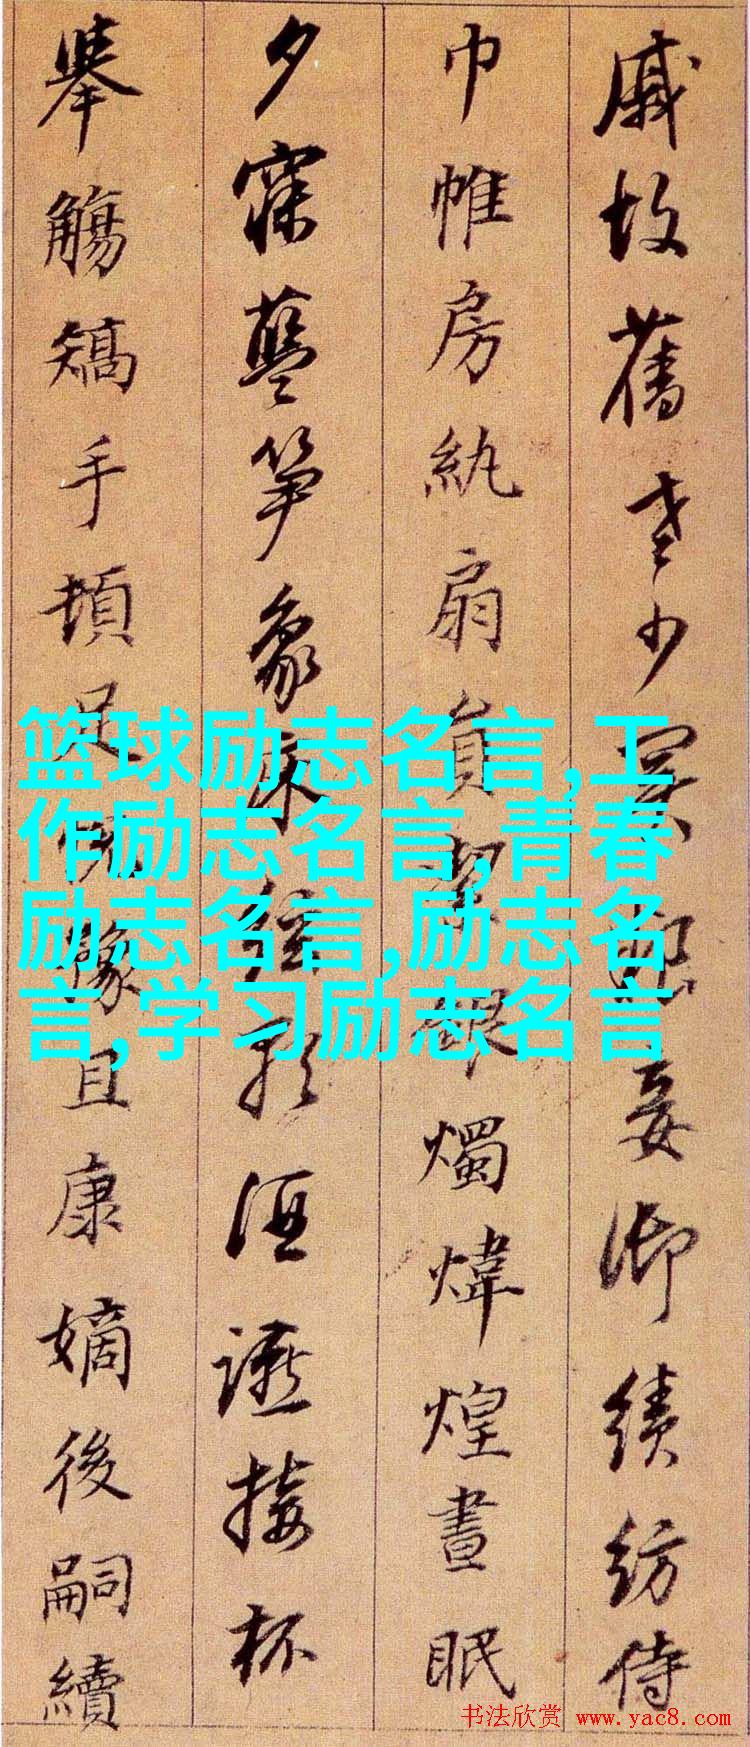 戚故舊老少異粮妾御績紡侍
巾帷房紈扇員潔銀燭煒煌晝眠
夕寐藍笋象床弦歌酒讌接杯
舉觴矯手頓足悅豫且康嫡後嗣續
篮球励志名言,工
作励志名言,青春
励志名言,励志名
言,学习励志名言
书法欣赏 www.yac8.com